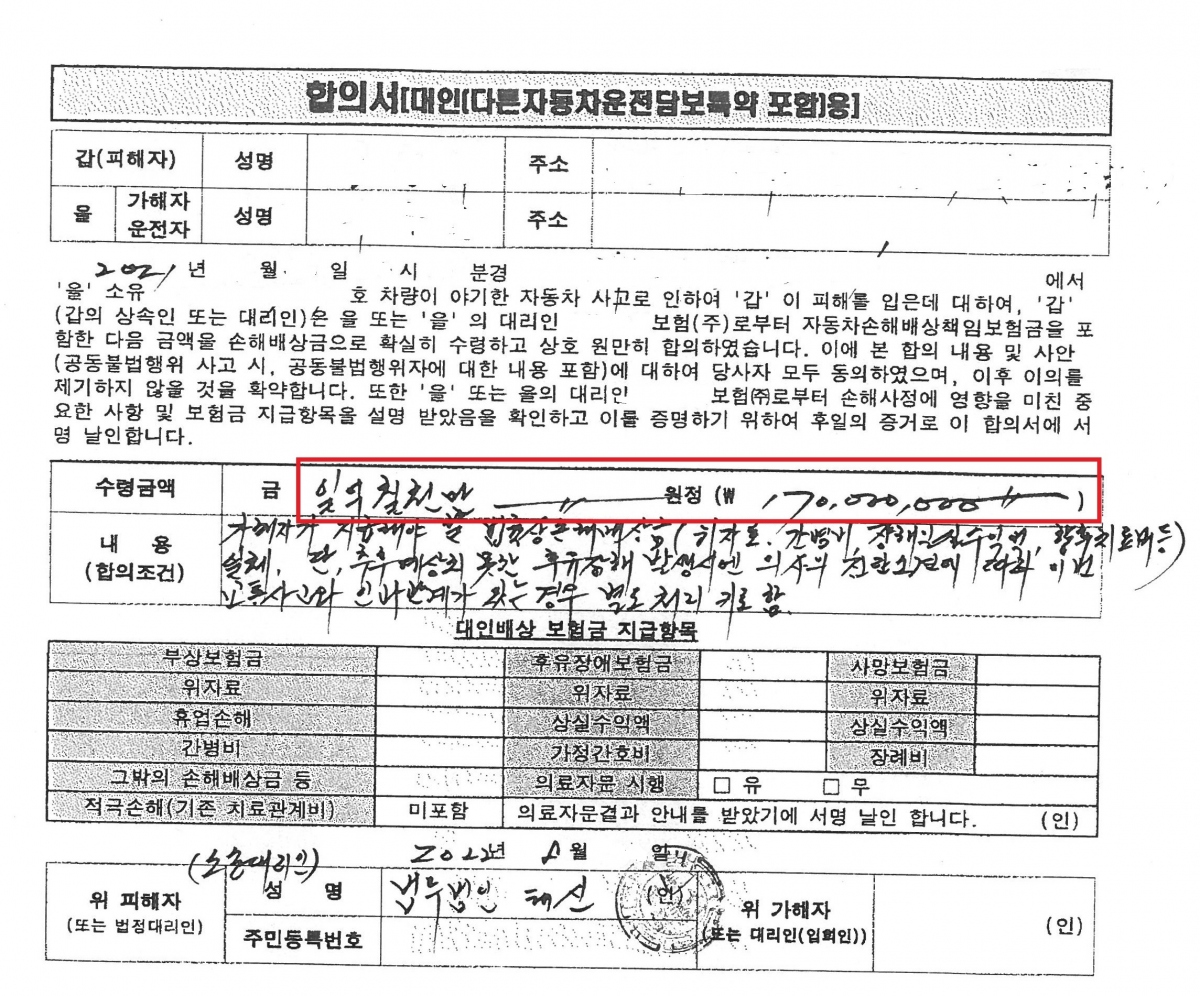 합의서[대인(다른자동차운전담보특약 포함)용]
갑(피해자) 성명 주소
을 가해자 운전자 성명 주소
2021년 월 일 시 분경 에서
'을' 소유 호 차량이 야기한 자동차 사고로 인하여 '갑' 이 피해를 입은데 대하여, '갑'
(갑의 상속인 또는 대리인)은 을 또는 '을' 의 대리인 보험(주)로부터 자동차손해배상책임보험금을 포
함한 다음 금액을 손해배상금으로 확실히 수령하고 상호 원만히 합의하였습니다. 이에 본 합의 내용 및 사안
(공동불법행위 사고 시, 공동불법행위자에 대한 내용 포함)에 대하여 당사자 모두 동의하였으며, 이후 이의를
제기하지 않을 것을 확약합니다. 또한 '을' 또는 을의 대리인 보험㈜로부터 손해사정에 영향을 미친 중
요한 사항 및 보험금 지급항목을 설명 받았음을 확인하고 이를 증명하기 위하여 후일의 증거로 이 합의서에 서
명 날인합니다.
수령금액 금 일억칠천만 원정 (₩ 170,000,000 )
내 용
(합의조건)
가해자가 지급해야 할 법률상손해배상금(위자료, 간병비, 장해상실수익액, 향후치료비등)
일체, 단, 추후 예상치 못한 후유장해 발생시엔 의사의 진단소견에 따라 이번
교통사고와 인과관계가 있는 경우 별도 처리 키로 함.
대인배상 보험금 지급항목
부상보험금 후유장애보험금 사망보험금
위자료 위자료 위자료
휴업손해 상실수익액 상실수익액
간병비 가정간호비 장례비
그밖의 손해배상금 등 의료자문 시행 □ 유 □ 무
적극손해(기존 치료관계비) 미포함 의료자문결과 안내를 받았기에 서명 날인 합니다. (인)
2022년 8월 일
(소송대리인)
위 피해자
(또는 법정대리인)
성 명 법무법인 태신 (인)
주민등록번호
위 가해자
(또는 대리인(입회인))
(인)